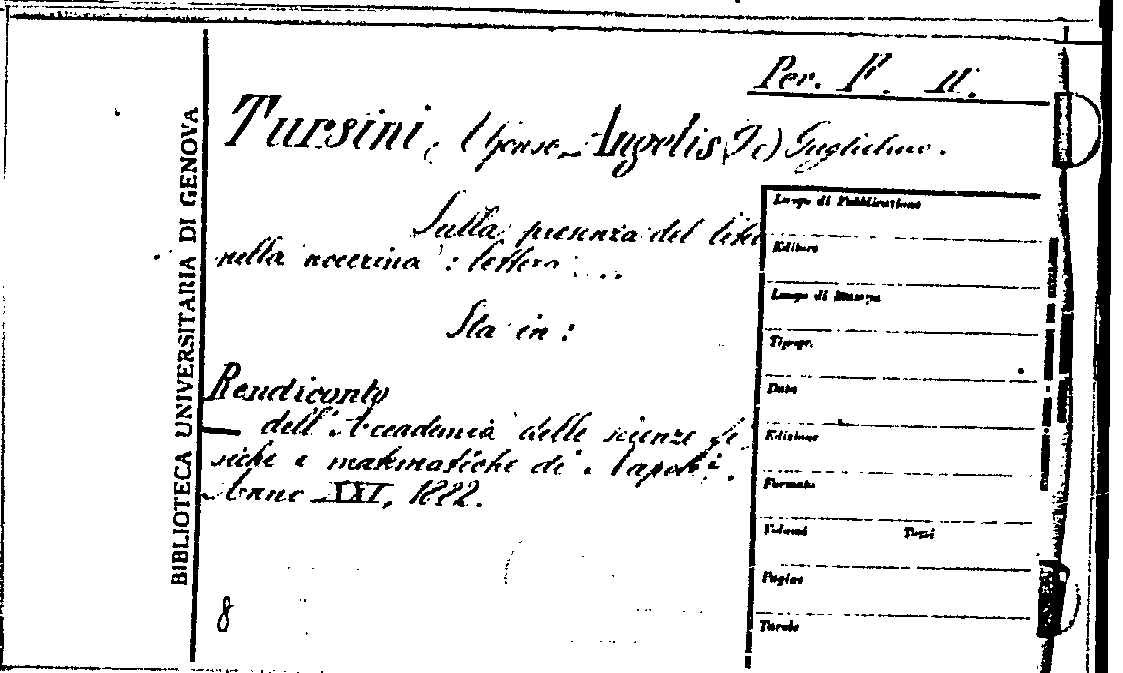 Per. F. II.
Tursini, Angelis (De) Guglielmo.
Sulla presenza del litio
nella nocerina : lettera ...
Sta in :
Rendiconto
dell'Accademia delle scienze fi
siche e matematiche di Napoli.
Anno XXI, 1882.
8
BIBLIOTECA UNIVERSITARIA DI GENOVA
Luogo di Pubblicazione
Editore
Luogo di Stampa
Tipogr.
Data
Edizione
Formato
Volumi Tomi
Pagine
Tavole